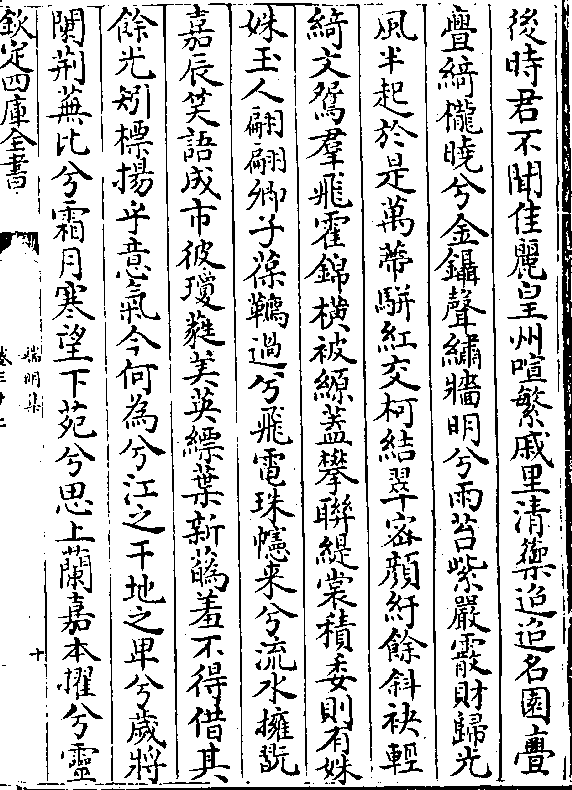 後時君不聞佳麗皇州喧繁戚里清籞迢迢名園亹
亹綺櫳曉兮金鑷聲繡牆明兮雨苔紫嚴霰財歸光
風半起於是萬蔕駢紅交柯結翠容顔紆餘斜袂輕
綺文鴛羣飛霍錦橫被縹蓋攀聯緹裳積委則有姝
姝玉人翩翩卿子葆鞴過兮飛電珠幰来兮流水擁翫
嘉辰笑語成市彼瓊蕤美英縹葉新蘤羞不得借其
餘光矧標揚乎意氣今何為兮江之干地之卑兮歲將
闌荆蕪比兮霜月寒望下苑兮思上蘭嘉本擢兮靈
欽定四庫全書
端明集
卷三十二
十